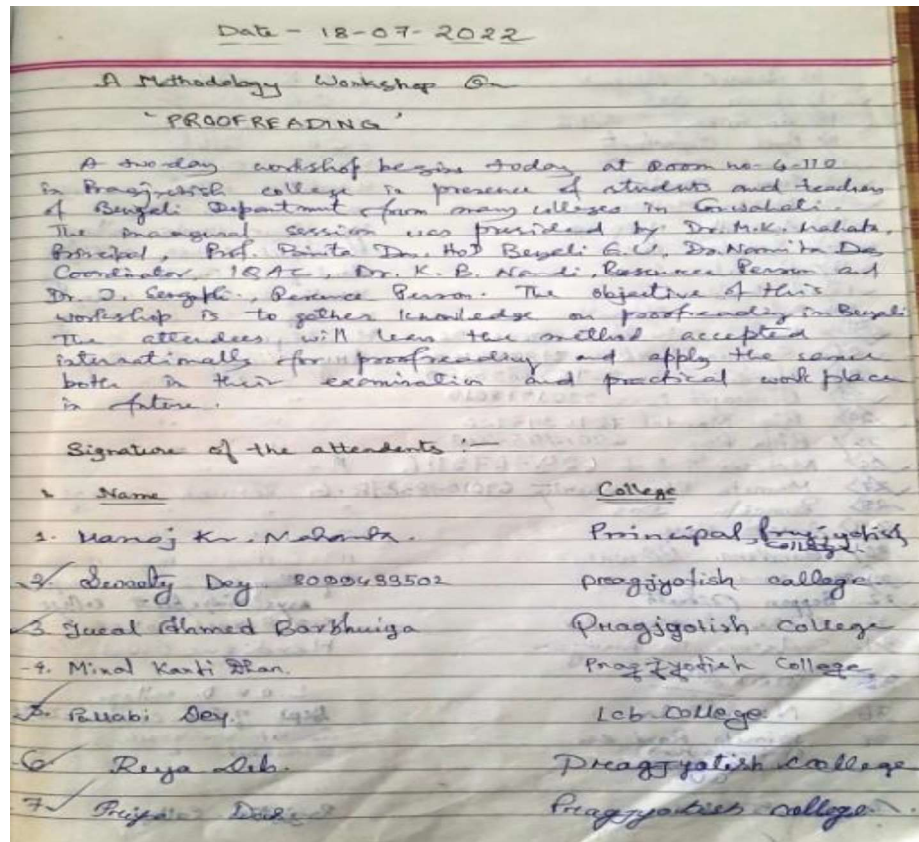 Date - 18-07-2022
A Methodology Workshop On
'PROOFREADING'
A two-day workshop begins today at Room no- G-110
in Pragjyotish college in presence of students and teachers
of Bengali Department from many colleges in Guwahati.
The inaugural session was presided by Dr. M.K. Mahanta,
Principal, Prof. Binita Das. HoD Bengali G.U, Dr. Namita Das
Coordinator IQAC, Dr. K. B. Nandi, Resource Person and
Dr. J. Sengupta, Resource Person. The objective of this
workshop is to gather knowledge on proofreading in Bengali
The attendees will learn the method accepted
internationally for proofreading and apply the same
both in their examination and practical work place
in future.
Signature of the attendents :-
Name College
1. Manoj Kr. Mahanta. Principal, Pragjyotish College.
2. Dey 8099489502 preagjyotish callage
3. Ahmed Barbhuiya Pragjyotish College
4. Kanti Dhar. Pragjyotish College
5. Pallabi Dey. Lcb College.
6 Reya Deb. Preagjyotish Callege
7 Preagjyotish college.